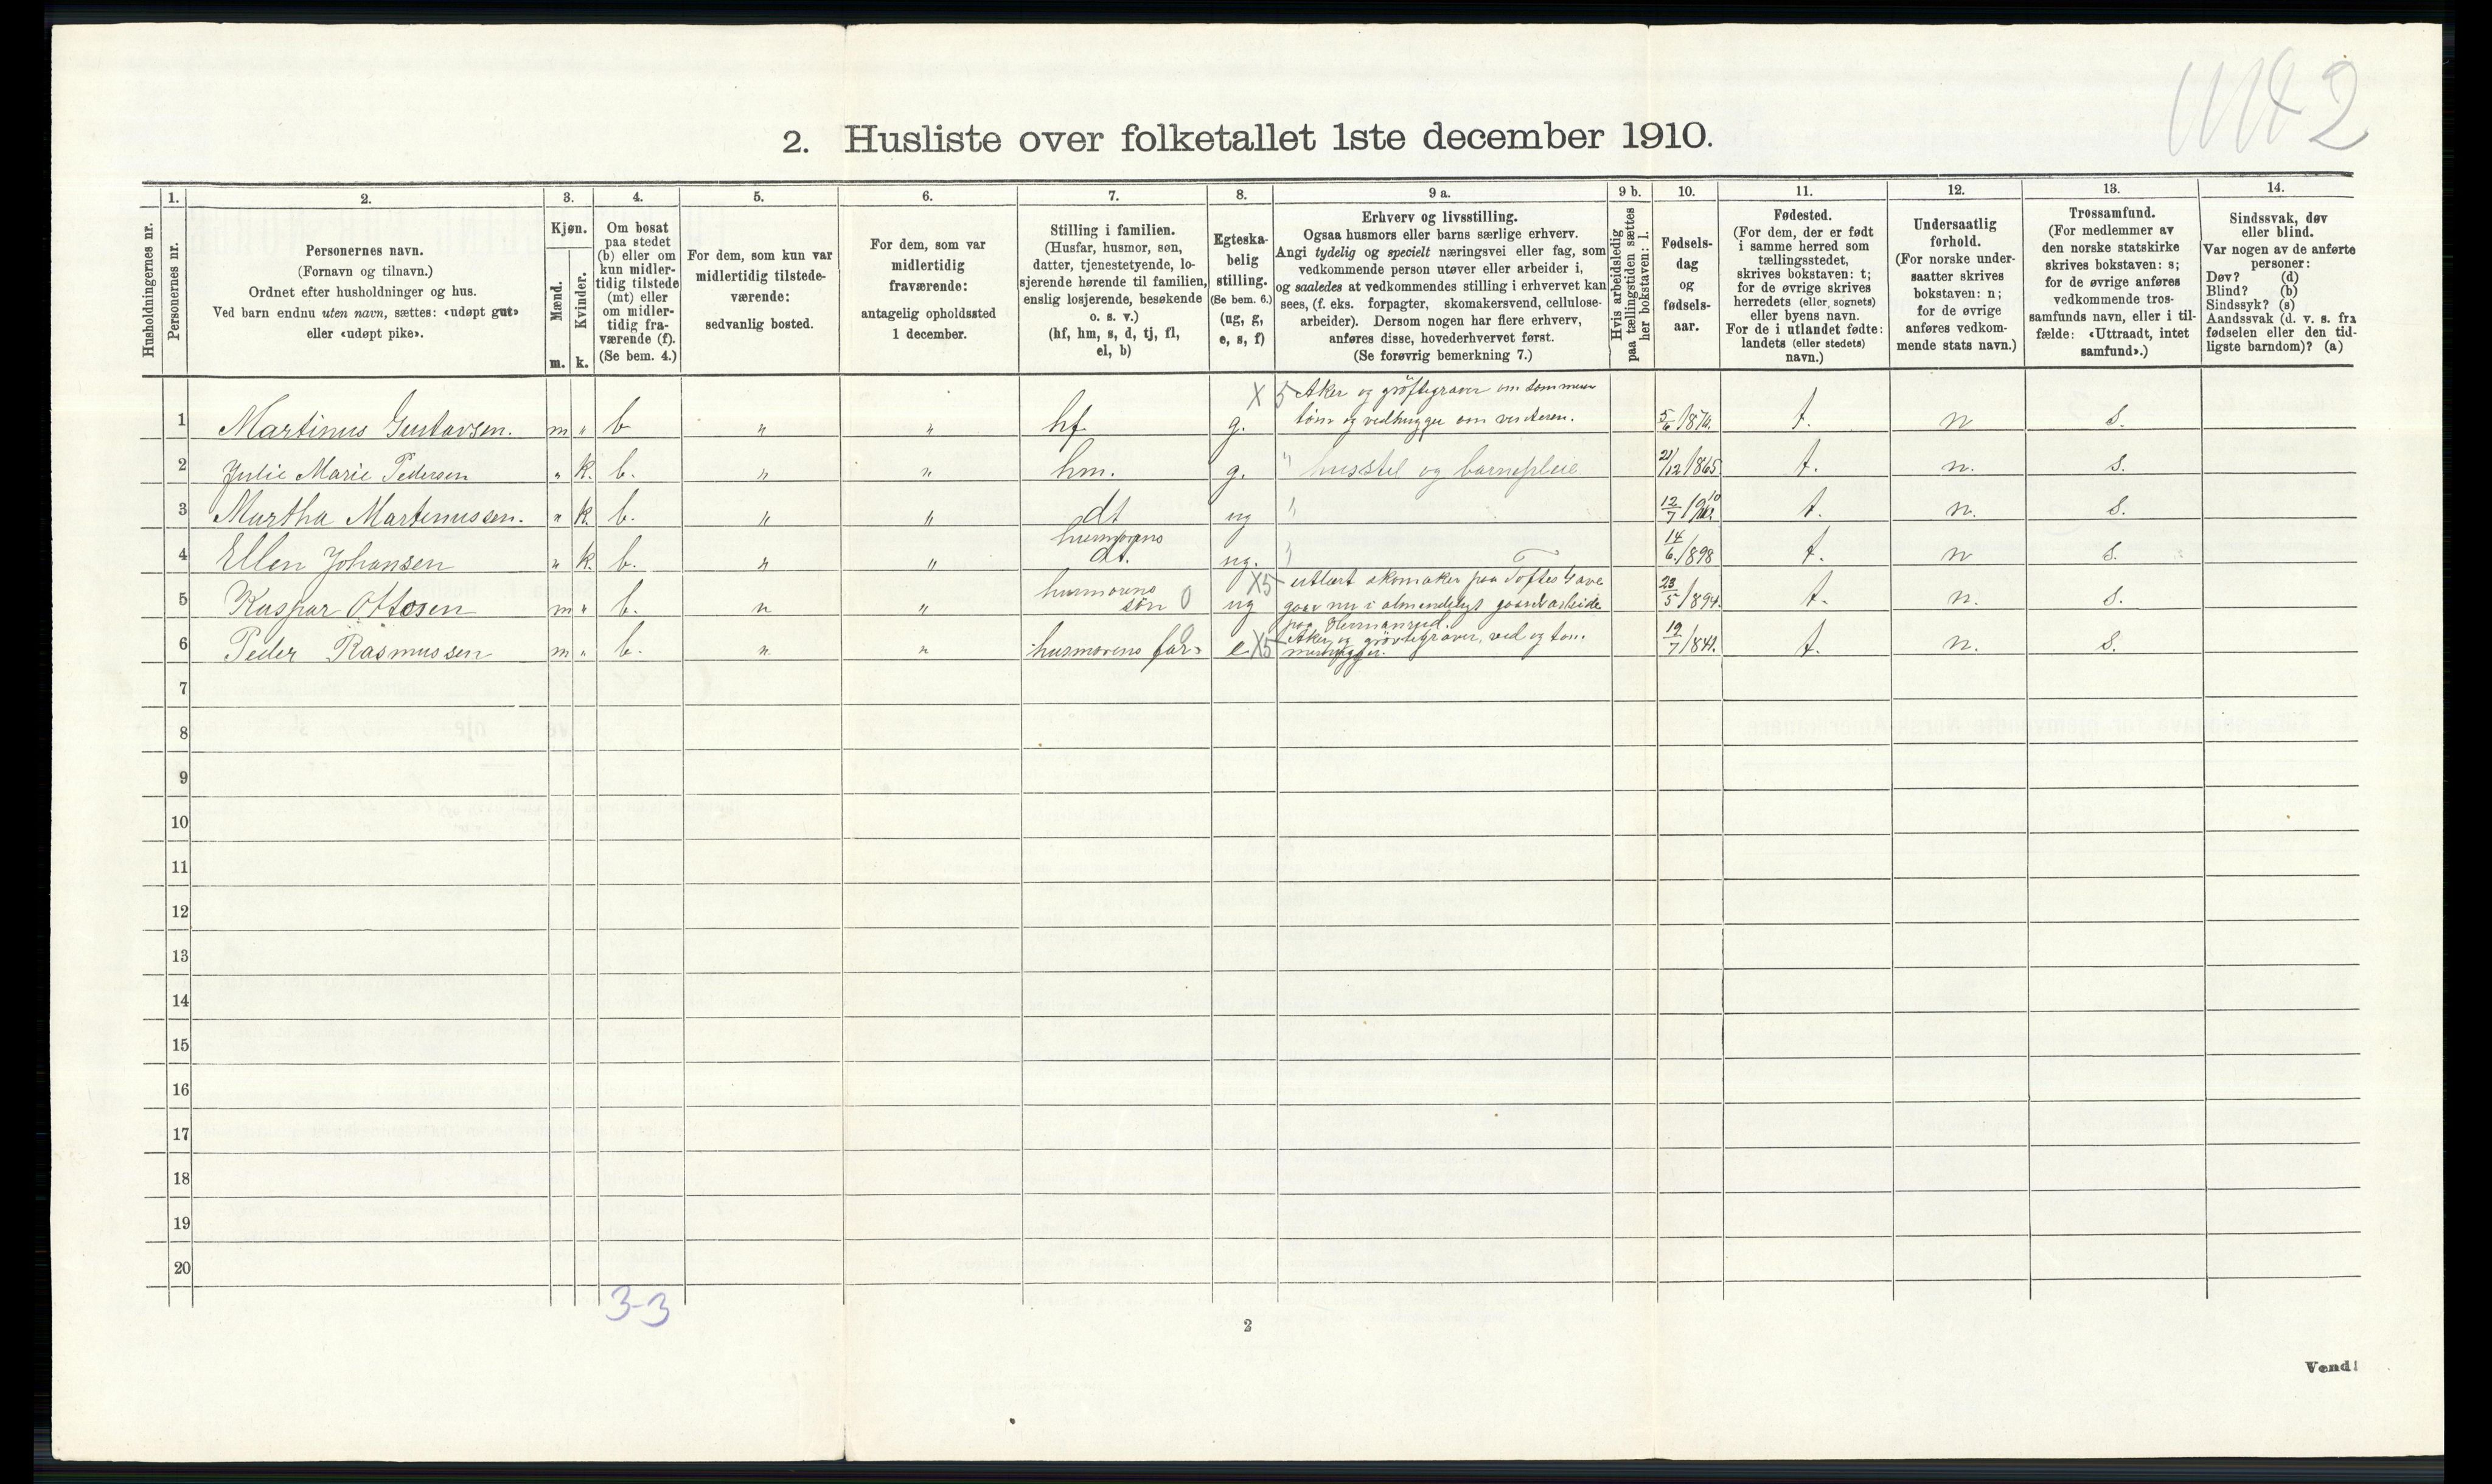 2. Husliste over folketallet 1ste december 1910.
2
Husholdningernes nr.
1.
Personernes nr.
2.
Personernes navn.
(Fornavn og tilnavn.)
Ordnet efter husholdninger og hus.
Ved barn endnu uten navn, sættes: «udøpt gut»
eller «udøpt pike».
3.
Kjøn.
Mænd.
Kvinder.
m. k.
4.
Om bosat
paa stedet
(b) eller om
kun midler-
tidig tilstede
(mt) eller
om midler-
tidig fra-
værende (f).
(Se bem. 4.)
5.
For dem, som kun var
midlertidig tilstede-
værende:
sedvanlig bosted.
6.
For dem, som var
midlertidig
fraværende:
antagelig opholdssted
1 december.
7.
Stilling i familien.
(Husfar, husmor, søn,
datter, tjenestetyende, lo-
sjerende hørende til familien,
enslig losjerende, besøkende
o. s. v.)
(hf, hm, s, d, tj, fl,
el, b)
8.
Egteska-
belig
stilling.
(Se bem. 6.)
(ug, g,
e, s, f)
9 a.
Erhverv og livsstilling.
Ogsaa husmors eller barns særlige erhverv.
Angi tydelig og specielt næringsvei eller fag, som
vedkommende person utøver eller arbeider i,
og saaledes at vedkommendes stilling i erhvervet kan
sees, (f. eks. forpagter, skomakersvend, cellulose-
arbeider). Dersom nogen har flere erhverv,
anføres disse, hovederhvervet først.
(Se forøvrig bemerkning 7.)
9 b.
Hvis arbeidsledig
paa tællingstiden sættes
her bokstaven: l.
10.
Fødsels-
dag
og
fødsels-
aar.
11.
Fødested.
(For dem, der er født
i samme herred som
tællingsstedet,
skrives bokstaven: t;
for de øvrige skrives
herredets (eller sognets)
eller byens navn.
For de i utlandet fødte:
landets (eller stedets)
navn.)
12.
Undersaatlig
forhold.
(For norske under-
saatter skrives
bokstaven: n;
for de øvrige
anføres vedkom-
mende stats navn.)
13.
Trossamfund.
(For medlemmer av
den norske statskirke
skrives bokstaven: s;
for de øvrige anføres
vedkommende tros-
samfunds navn, eller i til-
fælde: «Uttraadt, intet
samfund».)
14.
Sindssvak, døv
eller blind.
Var nogen av de anførte
personer:
Døv? (d)
Blind? (b)
Sindssyk? (s)
Aandssvak (d. v. s. fra
fødselen eller den tid-
ligste barndom)? (a)
X 5 Aker og grøftegraver om sommeren
1 Martinus Gustavsen. m „ b „ „ hf. g. tøm og vedhugger om vinteren. 5/6 t. n s.
2 Julie Marie Pedersen „ k. b. „ „ hm. g. " husstel og barnepleie 21/12 1865. t. n. s.
3 Martha Martinussen. „ k. b. „ „ dt ug " 12/7 1910 t. n. s.
4 Ellen Johansen „ k. b. „ „ husmorens dt. ug. " 14/6 1898 t. n s.
5 Kaspar Ottosen m „ b. „ „ husmorens søn 0 ug X5 utlært skomaker paa Toftes Gave
gaar nu i almindeligt gaardsarbeide
paa Hermansrud. 23/5 1894. t. n. s.
6 Peder Rasmussen m „ b. „ „ husmorens far e X5 Aker og grøvtegraver, ved og tøm-
merhugger. 12/7 1841. t. n. s.
7
8
9
10
11
12
13
14
15
16
17
18
19
20
3-3
2
Vend!